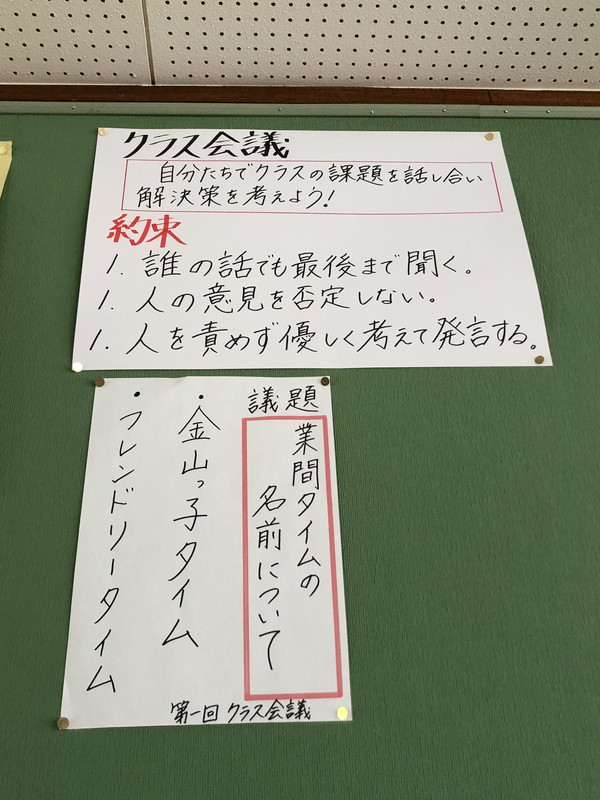 クラス会議
自分たちでクラスの課題を話し合い
解決策を考えよう!
約束
1. 誰の話でも最後まで聞く。
1. 人の意見を否定しない。
1. 人を責めず優しく考えて発言する。
議題
業間タイムの
名前について
・金山っ子タイム
・フレンドリータイム
第一回 クラス会議